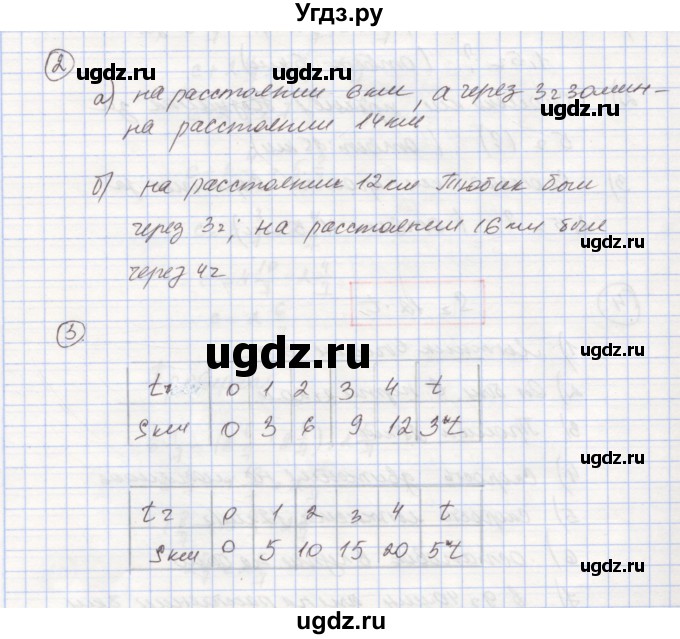 Угдз.ру
2
ugdz.ru
ugdz.ru
а) на расстоянии 6 км, а через 3ч 30мин –
ugdz.ru
на расстоянии 14 км
ugdz.ru
б) на расстоянии 12 км Тюбик был
через 3ч; на расстоянии 16 км был
ugdz.ru
через 4ч
ugdz.ru
3.
ugdz.ru
tч 0 1 2 3 4 t
Sкм 0 3 6 9 12 3·t
ugdz.ru
tч 0 1 2 3 4 t
ugdz.ru
Sкм 0 5 10 15 20 5·t
ugdz.ru
ugdz.ru